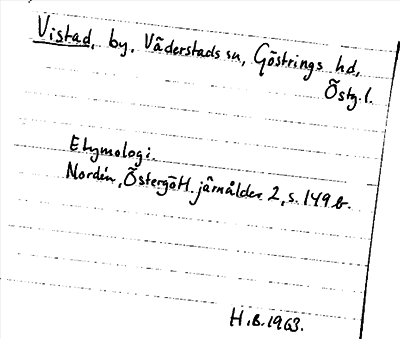 Vistad, by, Väderstads sn, Göstrings hd,
Östg. l.
Etymologi.
Nordén, Östergötl. järnålder 2, s. 149 b.
H.B. 1963.